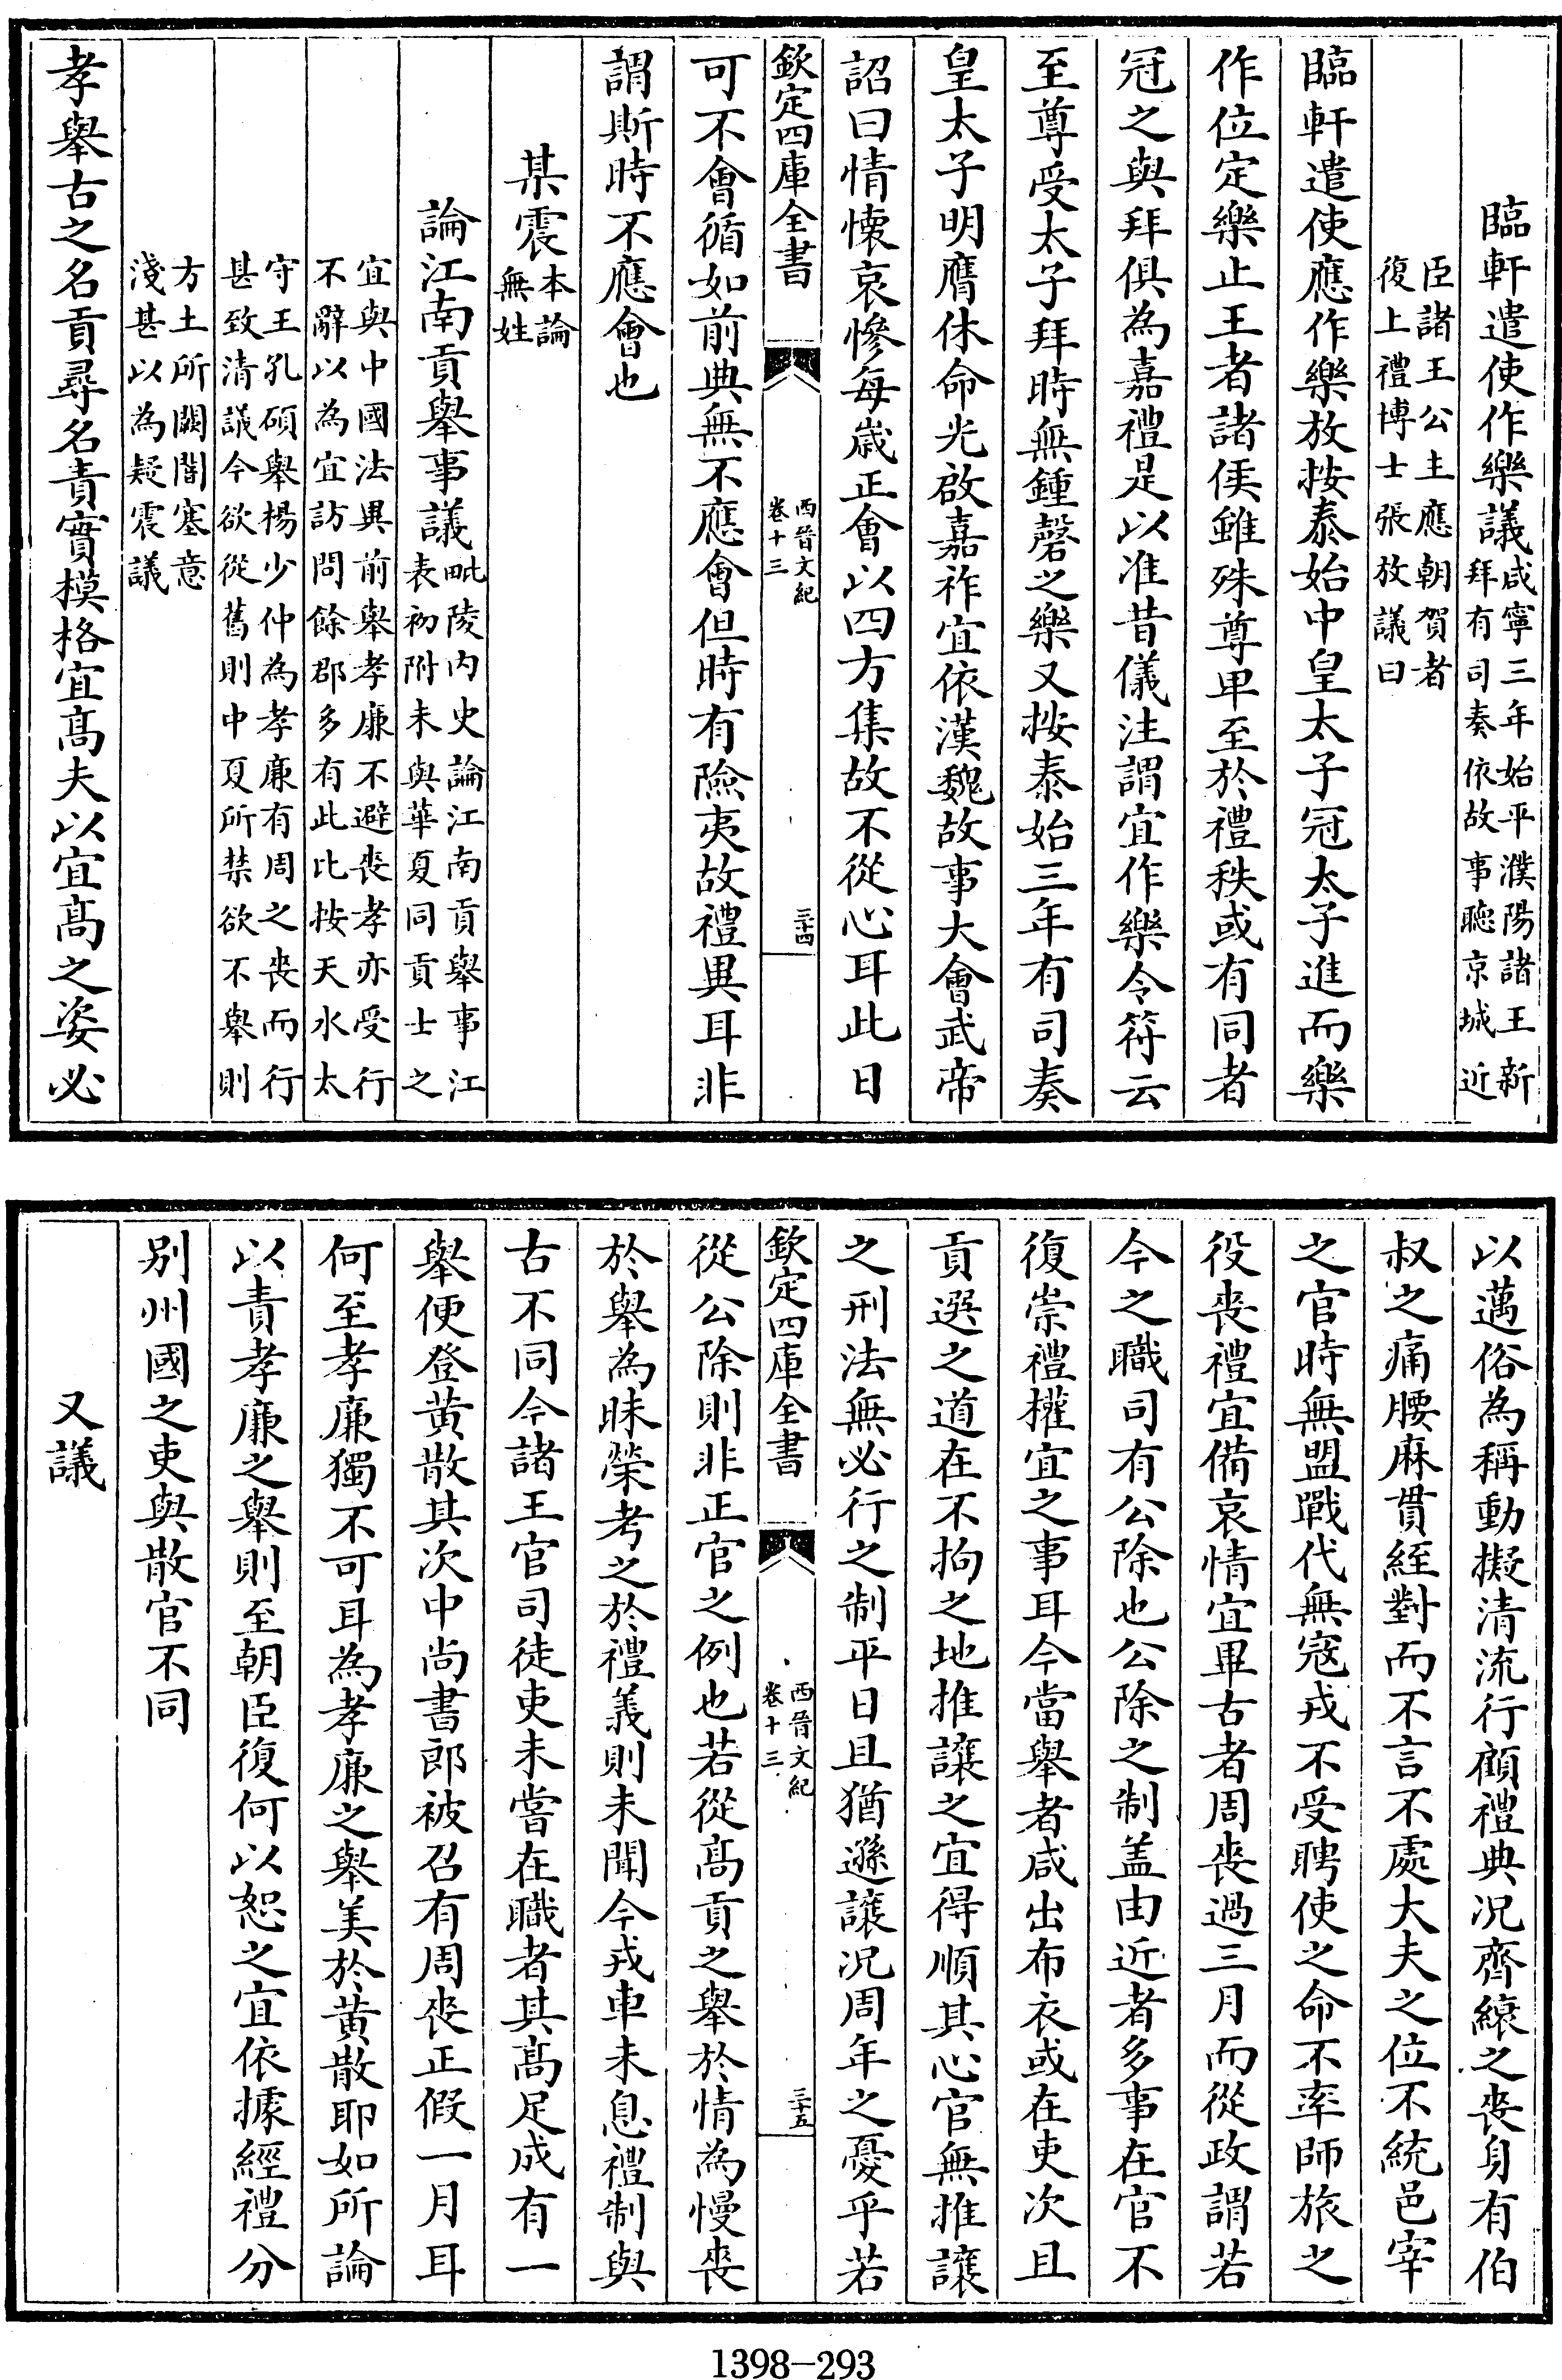 臨軒遣使作樂議咸寧三年始平濮陽諸王新
拜有司奏依故事聽京城近
臣諸王公主應朝賀者
復上禮博士張放議曰
臨軒遣使應作樂放按泰始中皇太子冠太子進而樂
作位定樂止王者諸侯雖殊尊卑至於禮秩或有同者
冠之與拜俱為嘉禮是以准昔儀注謂宜作樂令符云
至尊受太子拜時無鍾磬之樂又按泰始三年有司奏
皇太子明膺休命光啟嘉祚宜依漢魏故事大會武帝
詔曰情懷哀慘每歲正會以四方集故不從心耳此日
欽定四庫全書
西晉文紀
卷十三
三十四
可不會循如前典無不應會但時有險夷故禮異耳非
謂斯時不應會也
某震本論
無姓
論江南貢舉事議毗陵內史論江南貢舉事江
表初附未與華夏同貢士之
宜與中國法異前舉孝廉不避喪孝亦受行
不辭以為宜訪問餘郡多有此比按天水太
守王孔碩舉楊少仲為孝廉有周之喪而行
甚致清議今欲從舊則中夏所禁欲不舉則
方土所闕闇塞意
淺甚以為疑震議
孝舉古之名貢尋名責實模格宜髙夫以宜髙之姿必
以邁俗為稱動擬清流行顧禮典況齊縗之喪身有伯
叔之痛腰麻貫絰對而不言不處大夫之位不統邑宰
之官時無盟戰代無寇戎不受聘使之命不率師旅之
役喪禮宜備哀情宜畢古者周喪過三月而從政謂若
今之職司有公除也公除之制盖由近者多事在官不
復崇禮權宜之事耳今當舉者咸出布衣或在吏次且
貢選之道在不拘之地推讓之宜得順其心官無推讓
之刑法無必行之制平日且猶遜讓況周年之憂乎若
欽定四庫全書
西晉文紀
卷十三
三十五
從公除則非正官之例也若從髙貢之舉於情為慢喪
於舉為昧榮考之於禮義則未聞今戎車未息禮制與
古不同今諸王官司徒吏未嘗在職者其髙足成有一
舉便登黃散其次中尚書郎被召有周喪正假一月耳
何至孝廉獨不可耳為孝廉之舉美於黃散耶如所論
以責孝廉之舉則至朝臣復何以恕之宜依據經禮分
别州國之吏與散官不同
又議
1398—293